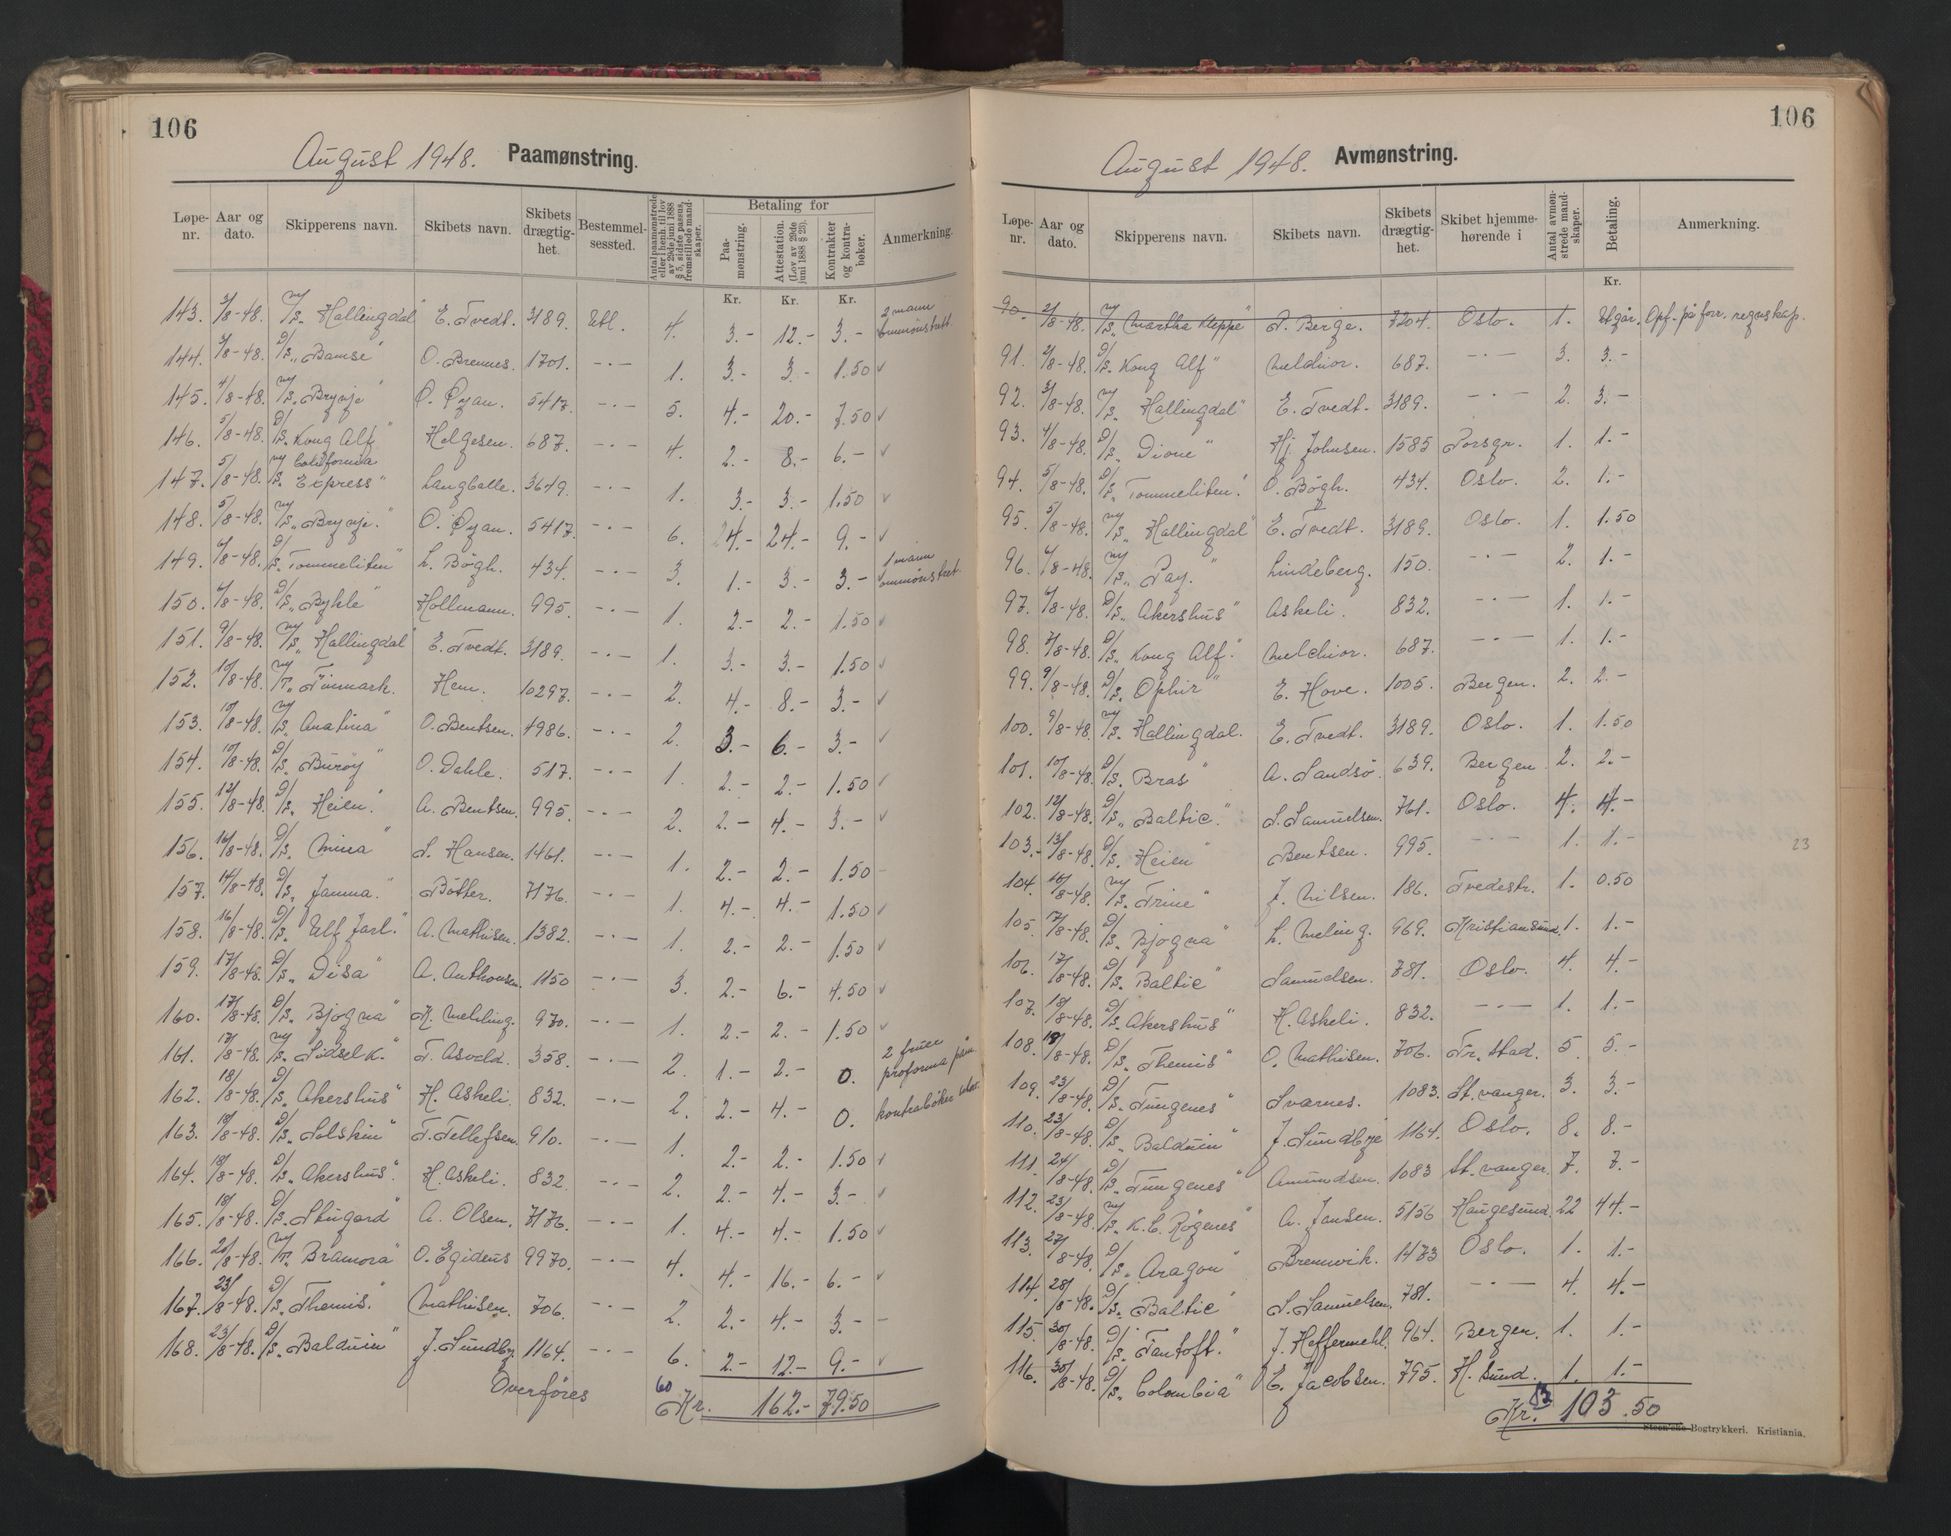 106
August 1948. Paamønstring.
Løpe-nr. Aar og dato. Skipperens navn. Skibets navn. Skibets drægtighet. Bestemmelsessted. Antal paamønstrede eller i henh. til lov av 29de juni 1888 § 5, sidste passus, fremstillede mandskaper. Betaling for Paamønstring. Attestation. (Lov av 29de juni 1888 § 23). Kontrakter og kontrabøker. Anmerkning.
Kr. Kr. Kr.
143. 3/8-48. M/S. "Hallingdal" E. Tvedt. 3189. Utl. 4. 3.- 12.- 3.- 2 mann ommønstrett
144. 3/8-48. D/S. "Bamse" O. Brennes. 1701. -"- 1. 3.- 3.- 1.50 ✓
145. 4/8-48. M/S. "Brynje" O. Øyan. 5417. -"- 5. 4.- 20.- 7.50 ✓
146. 5/8-48. D/S. "Kong Alf" Helgesen. 687. -"- 4. 2.- 8.- 6.- ✓
147. 5/8-48. M/S. "California Express" Langballe. 3649. -"- 1. 3.- 3.- 1.50 ✓
148. 5/8-48. M/S. "Brynje." O. Øyan. 5417. -"- 6. 24.- 24.- 9.- ✓
149. 6/8-48. D/S. "Tommeliten" L. Bøgh. 434. -"- 3. 1.- 3.- 3.- 1 mann ommønstret.
150. 6/8-48. D/S. "Bykle" Hollmann. 995. -"- 1. 2.- 2.- 1.50 ✓
151. 9/8-48. M/S. "Hallingdal" E. Tvedt. 3189. -"- 1. 3.- 3.- 1.50 ✓
152. 10/8-48. M/T. "Finmark. Hem. 10297. -"- 2. 4.- 8.- 3.- ✓
153. 10/8-48. M/S. "Anatina" O. Bentsen. 4986. -"- 2. 3.- 6.- 3.- ✓
154. 10/8-48. D/S. "Burøy" O. Dahle. 517. -"- 1. 2.- 2.- 1.50 ✓
155. 12/8-48. D/S. "Heien". A. Bentsen. 995. -"- 2. 2.- 4.- 3.- ✓
156. 16/8-48. D/S. "Mira" S. Hansen. 1461. -"- 1. 2.- 2.- 1.50 -
157. 14/8-48. D/S. "Janna." Bøtker. 7176. -"- 1. 4.- 4.- 1.50 ✓
158. 16/8-48. D/S. "Ulf Jarl." A. Mathisen. 1382. -"- 1. 2.- 2.- 1.50 ✓
159. 17/8-48. D/S. "Disa" A. Anthonsen. 1150 -"- 3. 2.- 6.- 4.50 ✓
160. 17/8-48. D/S. "Bjogna" H. Mehling. 970. -"- 1. 2.- 2.- 1.50 ✓
161. 17/8-48. M/S. "Sidsel K." T. Asveld. 358. -"- 2. 1.- 2.- 0. 2 fruer proforma påm.
162. 18/8-48. D/S. "Akershus" H. Askeli. 832. -"- 2. 2.- 4.- 0. kontrabøker
163. 18/8-48. D/S. "Solskin" T. Tellefsen. 910. -"- 1. 2.- 2.- 1.50 ✓
164. 18/8-48. D/S. "Akershus". H. Askeli. 832. -"- 2. 2.- 4.- 3.- ✓
165. 18/8-48. D/S. "Skugard" A. Olsen. 7176. -"- 1. 4.- 4.- 1.50 ✓
166. 20/8-48. M/T. "Bramora" O. Egideus 9970. -"- 4. 4.- 16.- 6.- ✓
167. 23/8-48. D/S. "Themis". Mathisen. 706. -"- 2. 2.- 4.- 3.- -
168. 23/8-48. D/S. "Balduin" J. Sundby. 1164. -"- 6. 2.- 12.- 9.- ✓
Overføres 60 Kr. 162.- 79.50
106
August 1948. Avmønstring.
Løpe-nr. Aar og dato. Skipperens navn. Skibets navn. Skibets drægtighet. Skibet hjemmehørende i Antal avmønstrede mandskaper. Betaling. Anmerkning.
Kr.
90. 2/8-48. M/S. "Martha Kleppe" S. Berge. 7204. Oslo. 1. Utgår. Opf. på forr. regnskap.
91. 2/8-48. D/S. Kong Alf" Melchior. 687. -"- 3. 3.-
92. 3/8-48. M/S. "Hallingdal" E. Tvedt. 3189. -"- 2. 3.-
93. 4/8-48. D/S. "Dione" Hj. Johnsen. 1585 Porsgr. 1. 1.-
94. 5/8-48. D/S. "Tommeliten." O. Bøgh. 434. Oslo. 2. 1.-
95. 5/8-48. M/S. "Hallingdal" E. Tvedt. 3189. Oslo. 1. 1.50
96. 6/8-48. M/S. "Pay." Lindeberg. 150. -"- 2. 1.-
97. 6/8-48. D/S. "Akershus" Askeli. 832. -"- 1. 1.-
98. 7/8-48. D/S. "Kong Alf." Melchior. 687. -"- 1. 1.-
99. 9/8-48. D/S. "Ophir" E. Hove. 1005. Bergen. 2. 2.-
100. 9/8-48. M/S. "Hallingdal. E. Tvedt. 3189. Oslo. 1. 1.50
101. 10/8-48. D/S. "Bras" A. Sandsø. 639. Bergen 2. 2.-
102. 12/8-48. D/S. "Baltic." S. Samuelsen. 761. Oslo. 4. 4.-
103. 13/8-48. D/S. "Heien" Bentsen. 995. -"- 1. 1.-
23
104. 16/8-48. M/S. "Trine" J. Nilsen. 186. Tvedestr. 1. 0.50
105. 17/8-48. D/S. "Bjogna" H. Meling. 969. Kristiansund. 1. 1.-
106. 17/8-48. D/S. "Baltic" Samuelsen. 781. Oslo. 4. 4.-
107. 18/8-48. D/S. "Akershus" H. Askeli. 832. -"- 1. 1.-
108. 18/8-48. D/S. "Themis" O. Mathisen. 706. Fr. stad. 5. 5.-
109. 23/8-48. D/S. "Tungenes" Svarnes. 1083. St.vanger. 3. 3.-
110. 23/8-48. D/S. "Balduin" J. Sundbye 1164. Oslo. 8. 8.-
111. 24/8-48. D/S. "Tungenes" Amundsen. 1083 St.vanger. 7. 7.-
112. 23/8-48. M/S. "K. C. Røgenes" A. Jansen. 5156 Haugesund. 22 44.-
113. 27/8-48. D/S. "Aragon" Brennvik. 1473 Oslo. 1. 1.-
114. 28/8-48. D/S. "Baltic" S. Samuelsen. 781. -"- 4. 4.-
115. 30/8-48. D/S. "Fantoft." J. Heffermehl. 964. Bergen. 1. 1.-
116. 30/8-48. D/S. "Colombia" E. Jacobsen. 795. H. sund. 1. 1.-
Kr. 103.50
Steen'ske Bogtrykkeri. Kristiania.